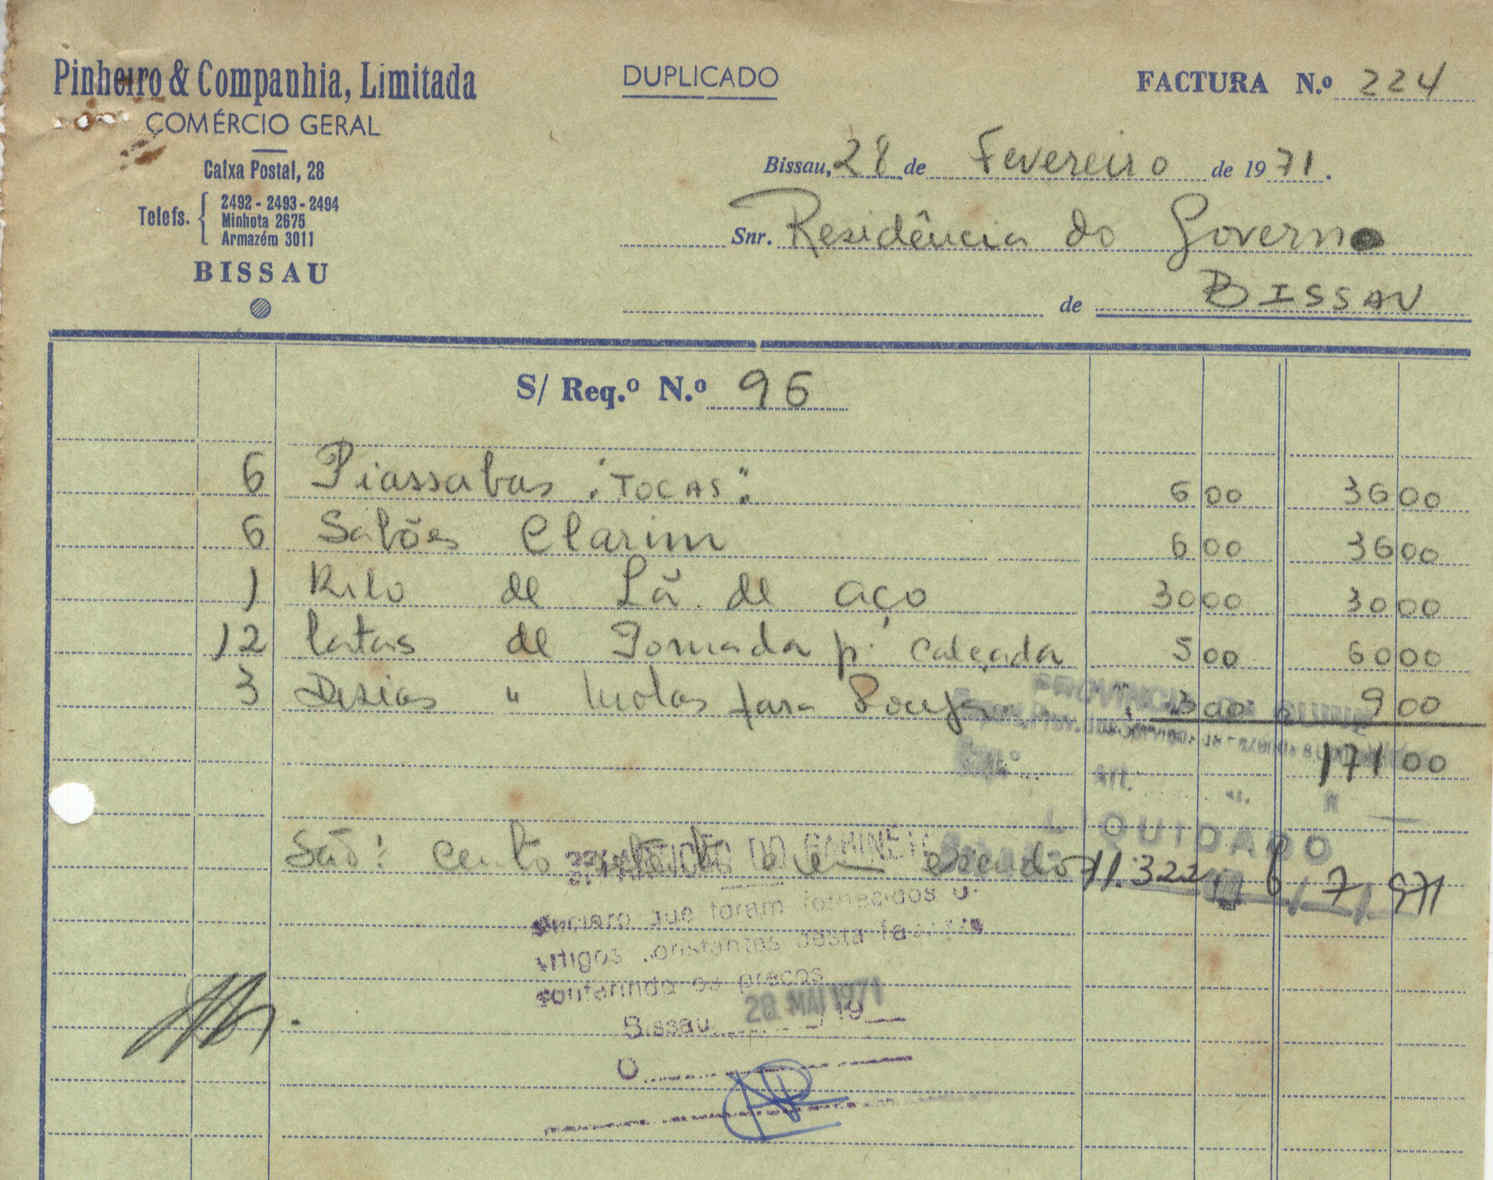 Pinheiro & Companhia, Limitada
COMÉRCIO GERAL
Caixa Postal, 28
Telefs. 2492 - 2493 - 2494
Minhota 2675
Armazém 3011
BISSAU
DUPLICADO
FACTURA N.º 224
Bissau, 28 de Fevereiro de 1971.
Snr. Residência do Governo
de BISSAU
S/ Req.º N.º 96
6 Piassabas "TOCAS" 6 00 36 00
6 Sabões Clarim 6 00 36 00
1 Kilo de Lã de aço 30 00 30 00
12 latas de Pomada p. calçada 5 00 60 00
3 Dusias " Molas para 3 00 9 00
PROVINCIA DA
171 00
Art.
LIQUIDADO
São: cento e um escudos
11.322 6/7/971
DO GABINETE
Declaro que foram fornecidos os
artigos constantes desta factura
conferindo os preços
Bissau, 28 MAI 1971 /19
O